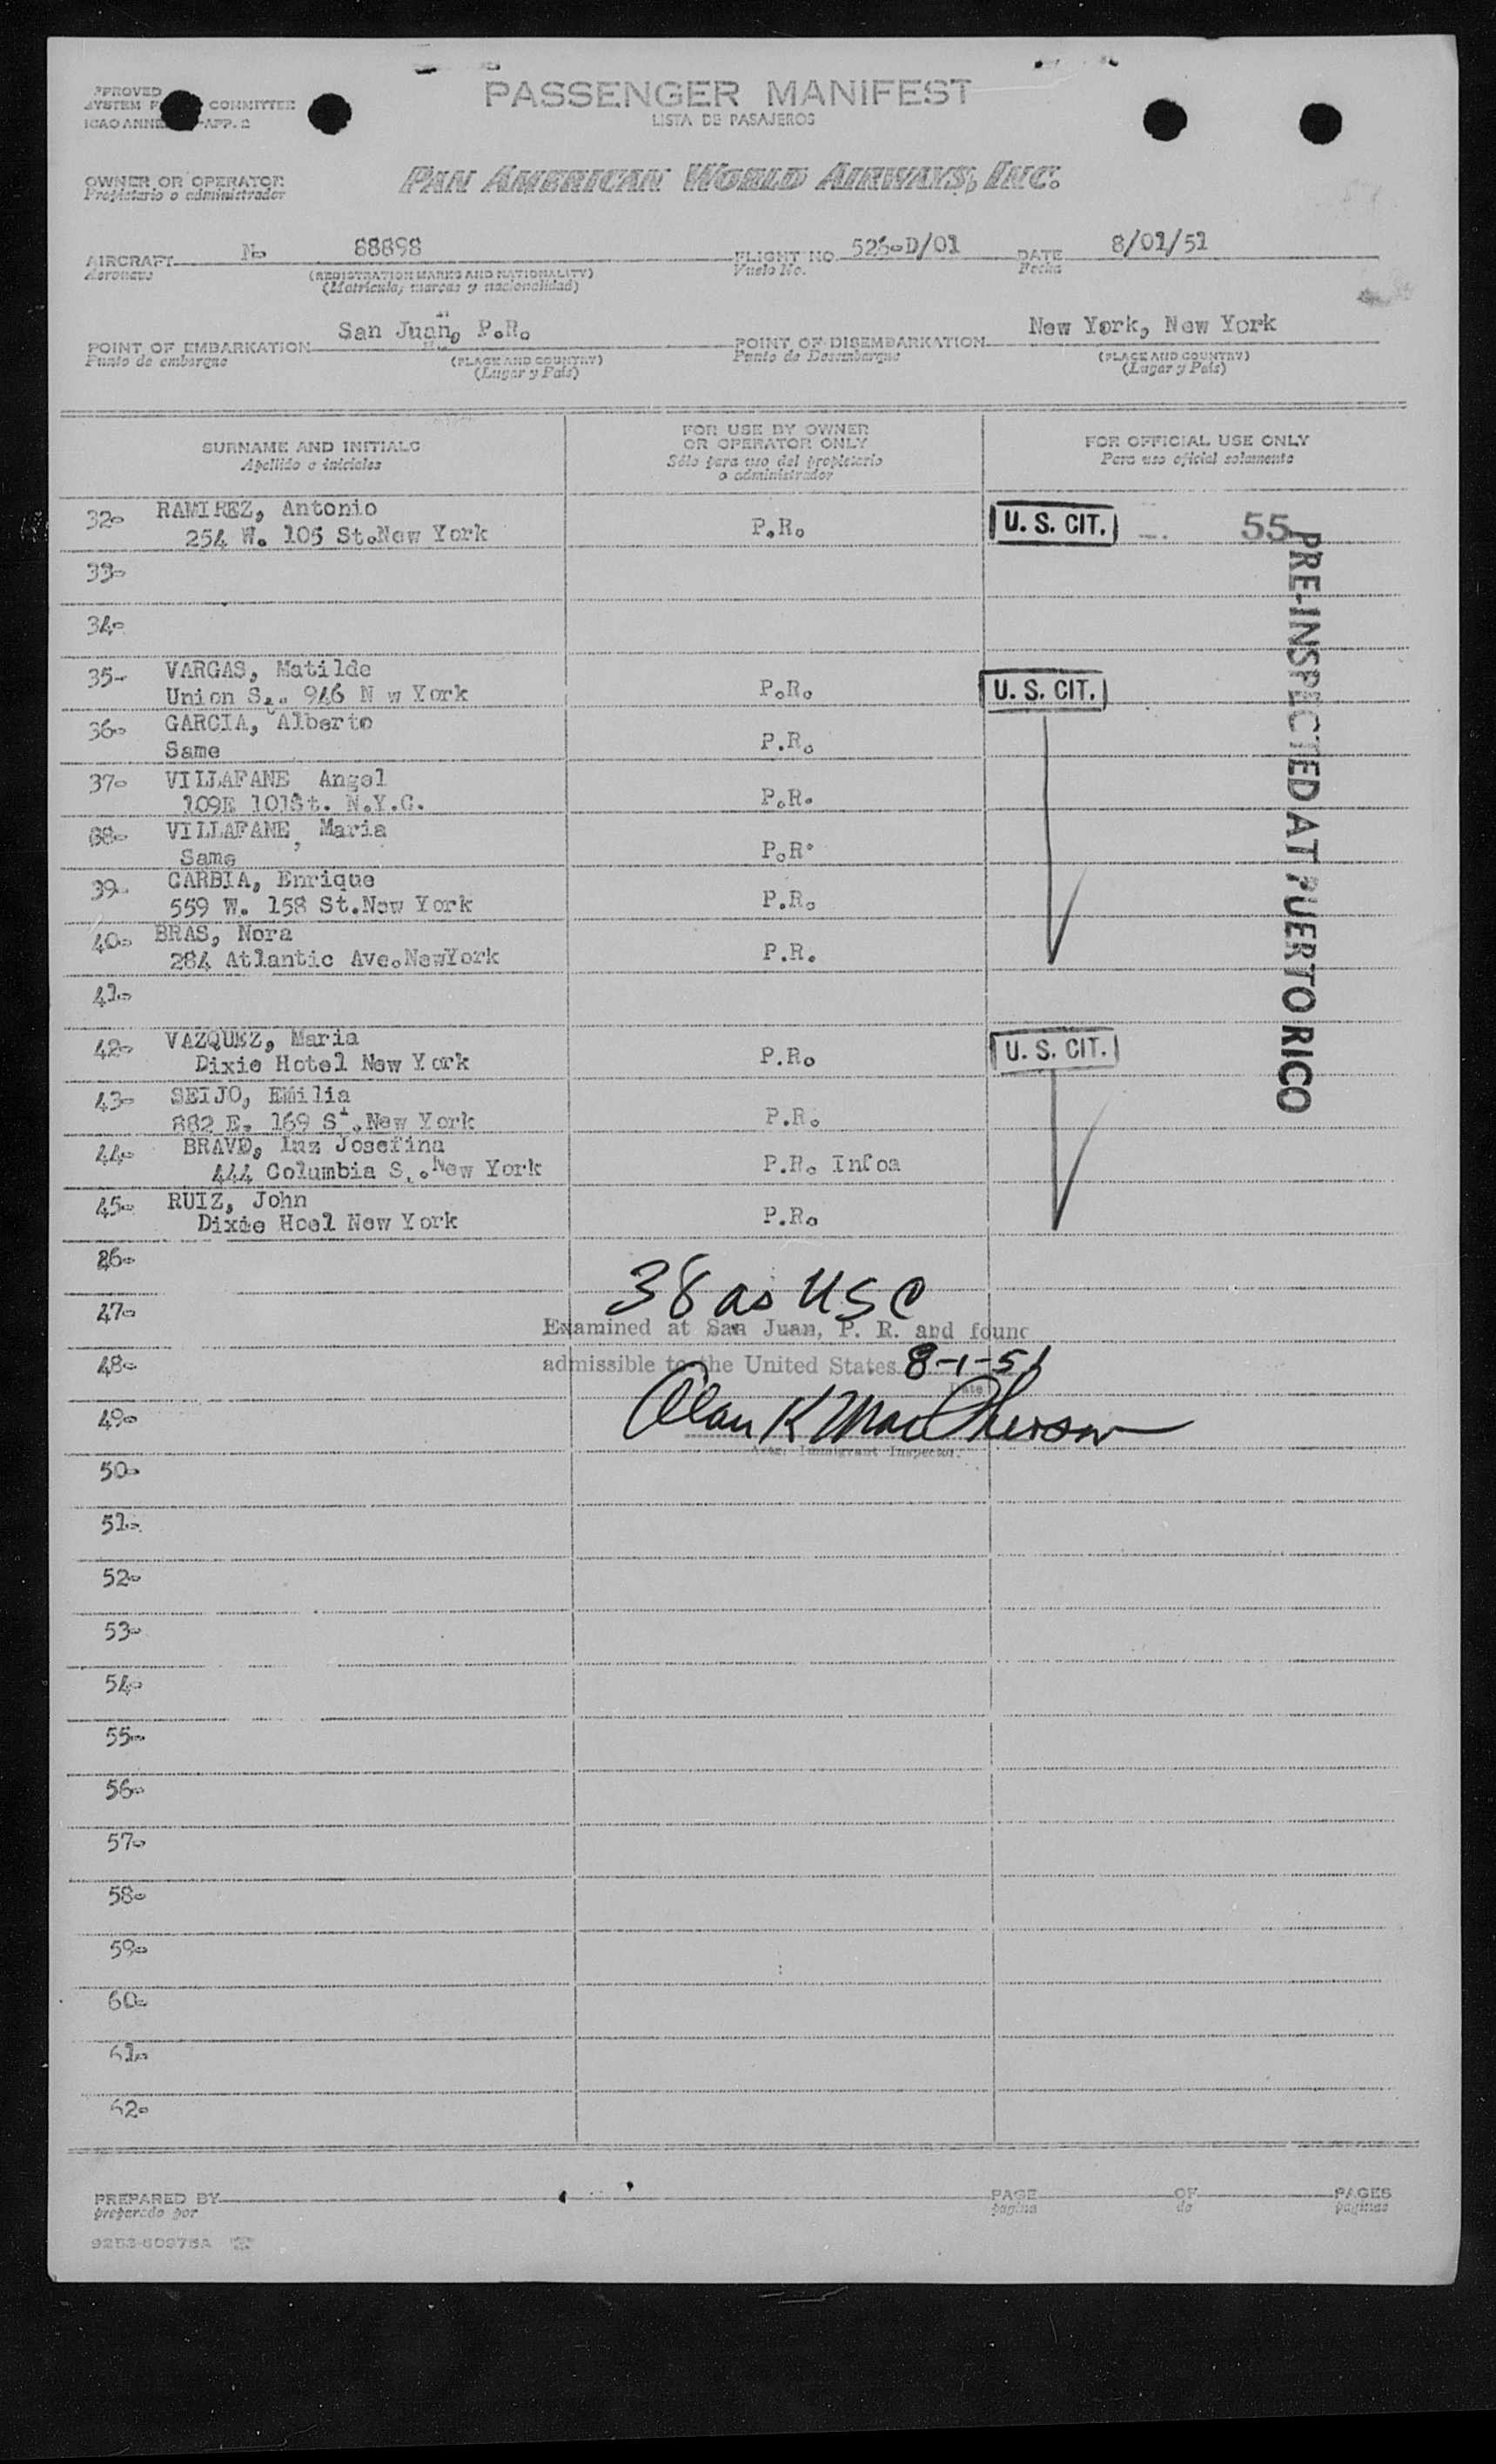 APPROVED
SYSTEM COMMITTEE
ICAO ANNE APP. 2
PASSENGER MANIFEST
LISTA DE PASAJEROS
OWNER OR OPERATOR
Propietario o administrador
PAN AMERICAN WORLD AIRWAYS, INC.
AIRCRAFT N- 88898 FLIGHT NO. 526-D/01 DATE 8/01/51
Aeronave (REGISTRATION MARKS AND NATIONALITY) Vuelo No. Fecha
(Matricula, marcas y nacionalidad)
POINT OF EMBARKATION San Juan, P.R. POINT OF DISEMBARKATION New York, New York
Punto de embarque (PLACE AND COUNTRY) Punto de Desembarque (PLACE AND COUNTRY)
(Lugar y País) (Lugar y País)
SURNAME AND INITIALS FOR USE BY OWNER OR OPERATOR ONLY FOR OFFICIAL USE ONLY
Apellido e iniciales Sólo para uso del propietario o administrador Para uso oficial solamente
32- RAMIREZ, Antonio
254 W. 105 St.New York P.R. U. S. CIT. 55
33-
34-
35- VARGAS, Matilde
Union S.. 946 N w York P.R. U. S. CIT.
36- GARCIA, Alberto
Same P.R.
37- VILLAFANE Angel
109E 101St. N.Y.C. P.R.
38- VILLAFANE, Maria
Same P.R.
39- CARBIA, Enrique
559 W. 158 St.New York P.R.
40- BRAS, Nora
284 Atlantic Ave.NewYork P.R.
41-
42- VAZQUEZ, Maria
Dixie Hotel New York P.R. U. S. CIT.
43- SEIJO, Emilia
882 E. 169 St.New York P.R.
44- BRAVO, Luz Josefina
444 Columbia S.. New York P.R. Infoa
45- RUIZ, John
Dixie Hoel New York P.R.
PRE-INSPECTED AT PUERTO RICO
46-
38 as USC
47-
Examined at San Juan, P. R. and found
48- admissible to the United States 8-1-51
Date
49- Alan K MacPherson
Immigrant Inspector.
50-
51-
52-
53-
54-
55-
56-
57-
58-
59-
60-
61-
62-
PREPARED BY PAGE OF PAGES
preparado por pagina de paginas